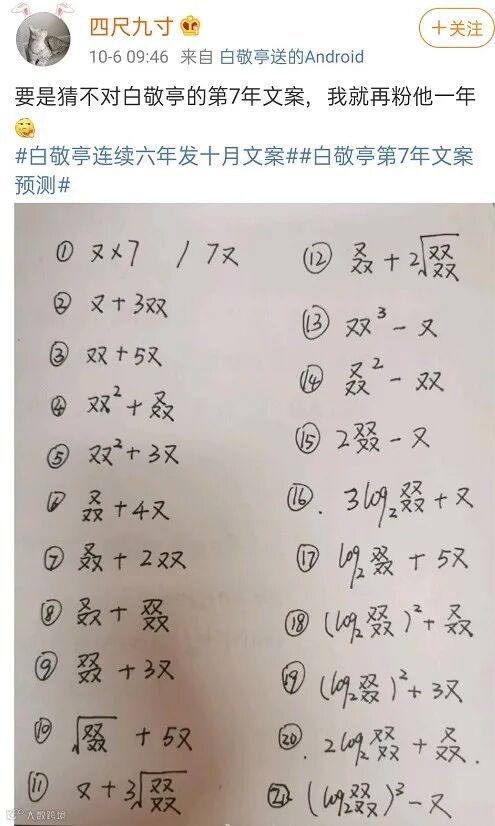 四尺九寸
+关注
10-6 09:46 来自 白敬亭送的Android
要是猜不对白敬亭的第7年文案，我就再粉他一年
#白敬亭连续六年发十月文案##白敬亭第7年文案
预测#
① 又×7 / 7又
② 又+3双
③ 双+5又
④ 双²+叒
⑤ 双²+3又
⑥ 叒+4又
⑦ 叒+2双
⑧ 叒+叕
⑨ 叕+3又
⑩ √叕+5又
⑪ 又+3√叕
⑫ 叒+2√叕
⑬ 双³-又
⑭ 叒²-双
⑮ 2叕-又
⑯. 3log₂叕+又
⑰ log₂叕+5又
⑱ (log₂叕)²+叒
⑲ (log₂叕)²+3又
⑳. 2log₂叕+叒.
㉑ (log₂叕)³-又
大数跨境